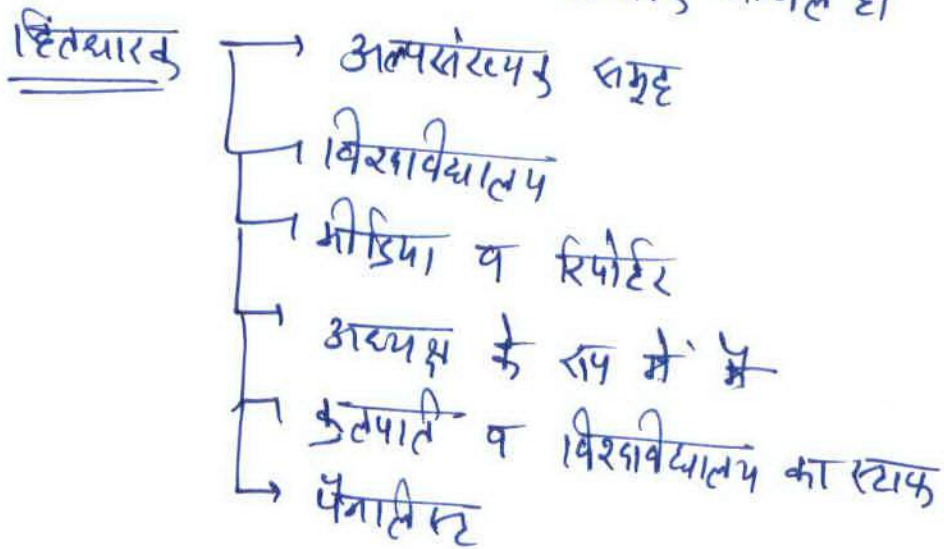 हितधारक → अल्पसंख्यक समूह
विश्वविद्यालय
मीडिया व रिपोर्टर
→ अध्यक्ष के रूप में मैं
कुलपति व विश्वविद्यालय का स्टाफ
→ पैनालिस्ट